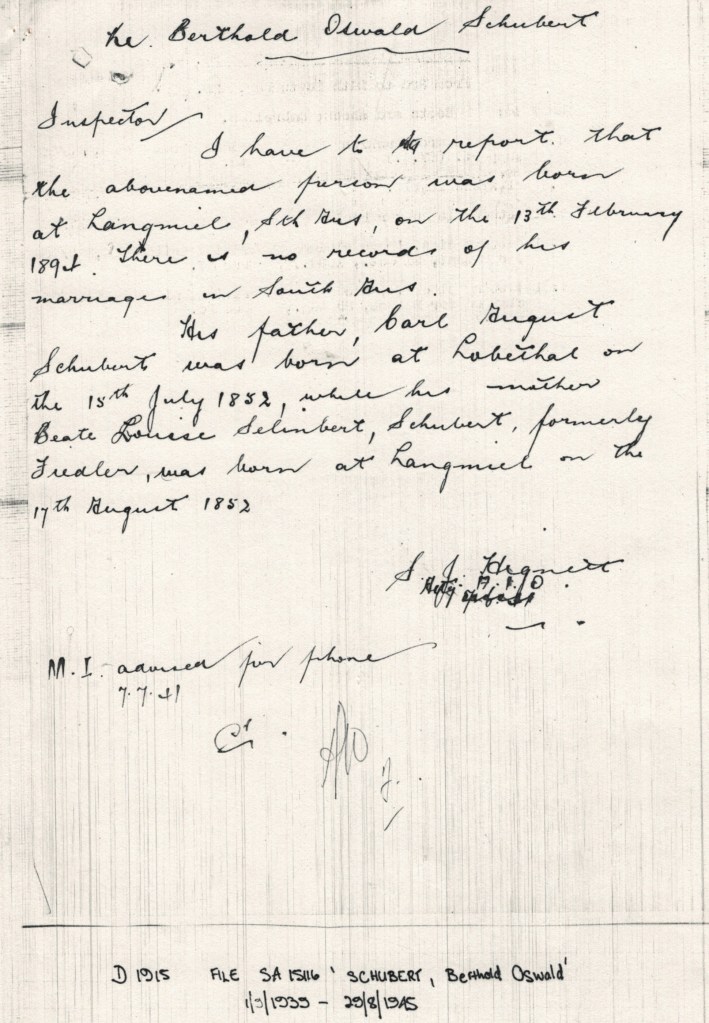 Re. Berthold Oswald Schubert
Inspector
I have to report that
the abovenamed person was born
at Langmiel, Sth Aus, on the 13th February
1894. There is no records of his
marriage in South Aus
His father, Carl August
Schubert was born at Lobethal on
the 15th July 1852, while his mother
Beate Louise Selinbert, Schubert, formerly
Fiedler, was born at Langmiel on the
17th August 1852
S. J. Hignett
M.I. advised per phone
7.7.41
D 1915 FILE SA 15116 'SCHUBERT, Berthold Oswald'
1/9/1939 - 29/8/1945